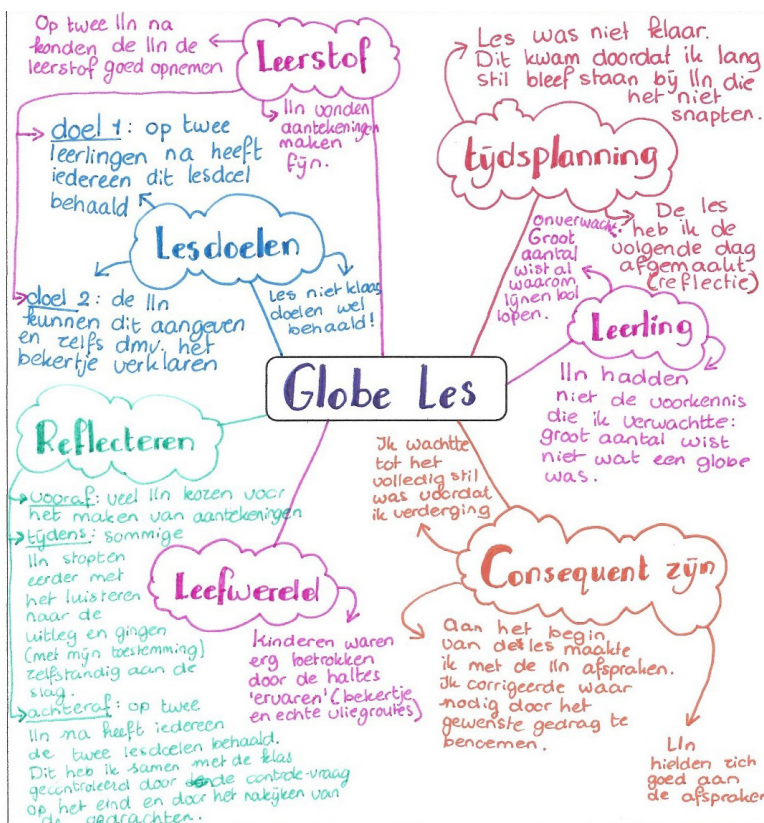 Op twee lln na
konden de lln de
leerstof goed opnemen
Leerstof
lln vonden
aantekeningen
maken
fijn.
doel 1: op twee
leerlingen na heeft
iedereen dit lesdoel
behaald
Lesdoelen
doel 2: de lln
kunnen dit aangeven
en zelfs dmv. het
bekertje verklaren
Les niet klaar,
doelen wel
behaald!
Les was niet klaar.
Dit kwam doordat ik lang
stil bleef staan bij lln die
het niet
snapten.
tijdsplanning
De les
heb ik de
volgende dag
afgemaakt
(reflectie)
onverwacht:
Groot
aantal
wist al
waarom
lijnen bol
lopen.
Leerling
lln hadden
niet de voorkennis
die ik verwachtte:
groot aantal wist
niet wat een globe
was.
Globe Les
Reflecteren
vooraf: veel lln kozen voor
het maken van aantekeningen
tijdens: sommige
lln stopten
eerder met
het luisteren
naar de
uitleg en gingen
(met mijn toestemming)
zelfstandig aan de
slag.
achteraf: op twee
lln na heeft iedereen
de twee lesdoelen behaald.
Dit heb ik samen met de klas
gecontroleerd door de controle-vraag
op het eind en door het nakijken van
de opdrachten.
Leefwereld
Kinderen waren
erg betrokken
door de haltes
'ervaren' (bekertje
en echte vliegroutes)
Ik wachtte
tot het
volledig stil
was voordat
ik verderging
Consequent zijn
Aan het begin
van de les maakte
ik met de lln afspraken.
Ik corrigeerde waar
nodig door het
gewenste gedrag te
benoemen.
Lln
hielden zich
goed aan
de afspraken